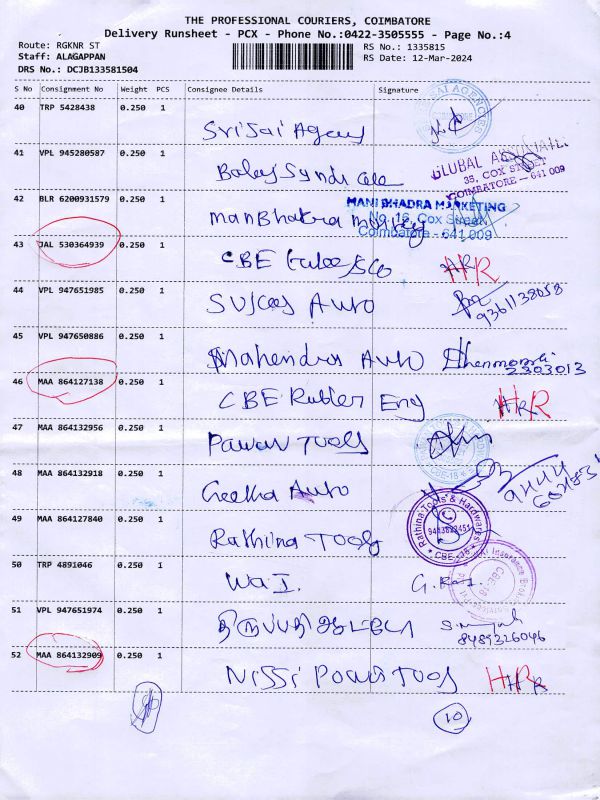 THE PROFESSIONAL COURIERS, COIMBATORE
Delivery Runsheet - PCX - Phone No.:0422-3505555 - Page No.:4
Route: RGKNR ST RS No.: 1335815
Staff: ALAGAPPAN RS Date: 12-Mar-2024
DRS No.: DCJB133581504
S No Consignment No Weight PCS Consignee Details Signature
40 TRP 5428438 0.250 1
Sri Sai Agency
41 VPL 945280587 0.250 1
Balaji Syndicate
GLOBAL ASSOCIATE
35, COX STREET
COIMBATORE - 641 009
42 BLR 6200931579 0.250 1
MANI BHADRA MARKETING
No. 16, Cox Street
Coimbatore - 641 009
43 JAL 530364939 0.250 1
CBE HR
44 VPL 947651985 0.250 1
Auto
9361138058
45 VPL 947650886 0.250 1
Mahendra Auto
2303013
46 MAA 864127138 0.250 1
CBE Rubber Eng HR
47 MAA 864132956 0.250 1
Pawan Tools
48 MAA 864132918 0.250 1
Geetha Auto
49 MAA 864127840 0.250 1
Rathina Tools
Rathina Tools & Hardwares
CBE-18
50 TRP 4891046 0.250 1
WaI.
51 VPL 947651974 0.250 1
8489326046
52 MAA 864132909 0.250 1
Nissi Power Tools HR
10